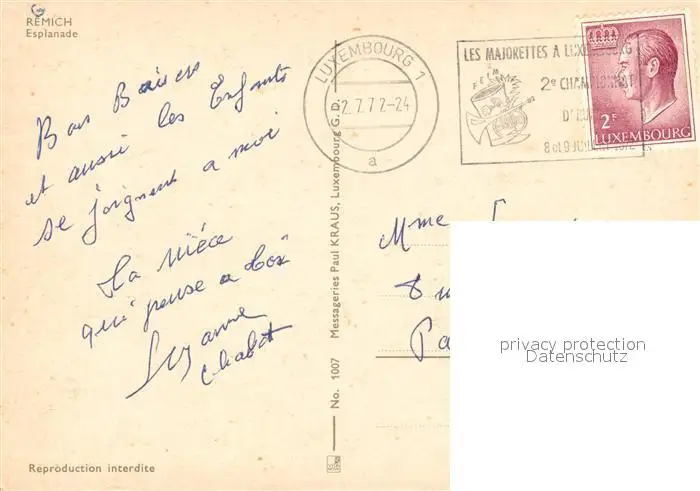 REMICH
Esplanade
Bons Baisers
et aussi les Enfants
se joignent a moi
Ta nièce
qui pense a toi
Suzanne
Chabot
Reproduction interdite
No. 1007 Messageries Paul KRAUS, Luxembourg G.D.
LUXEMBOURG 1
2.7.72-24
a
LES MAJORETTES A LUXEMBOURG
2e CHAMPIONNAT
8 et 9 JUILLET 1972
2F
LUXEMBOURG
Mme
8
privacy protection
Datenschutz